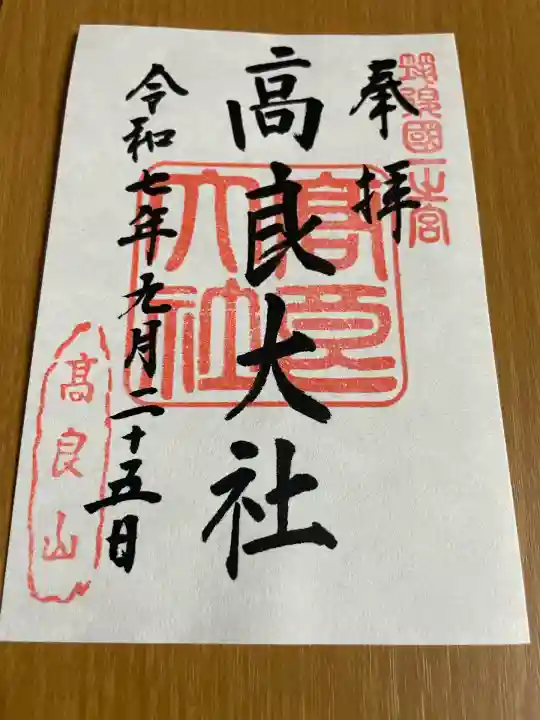 筑後國一之宮
奉拝
髙良大社
高良大社
令和七年九月二十五日
髙良山